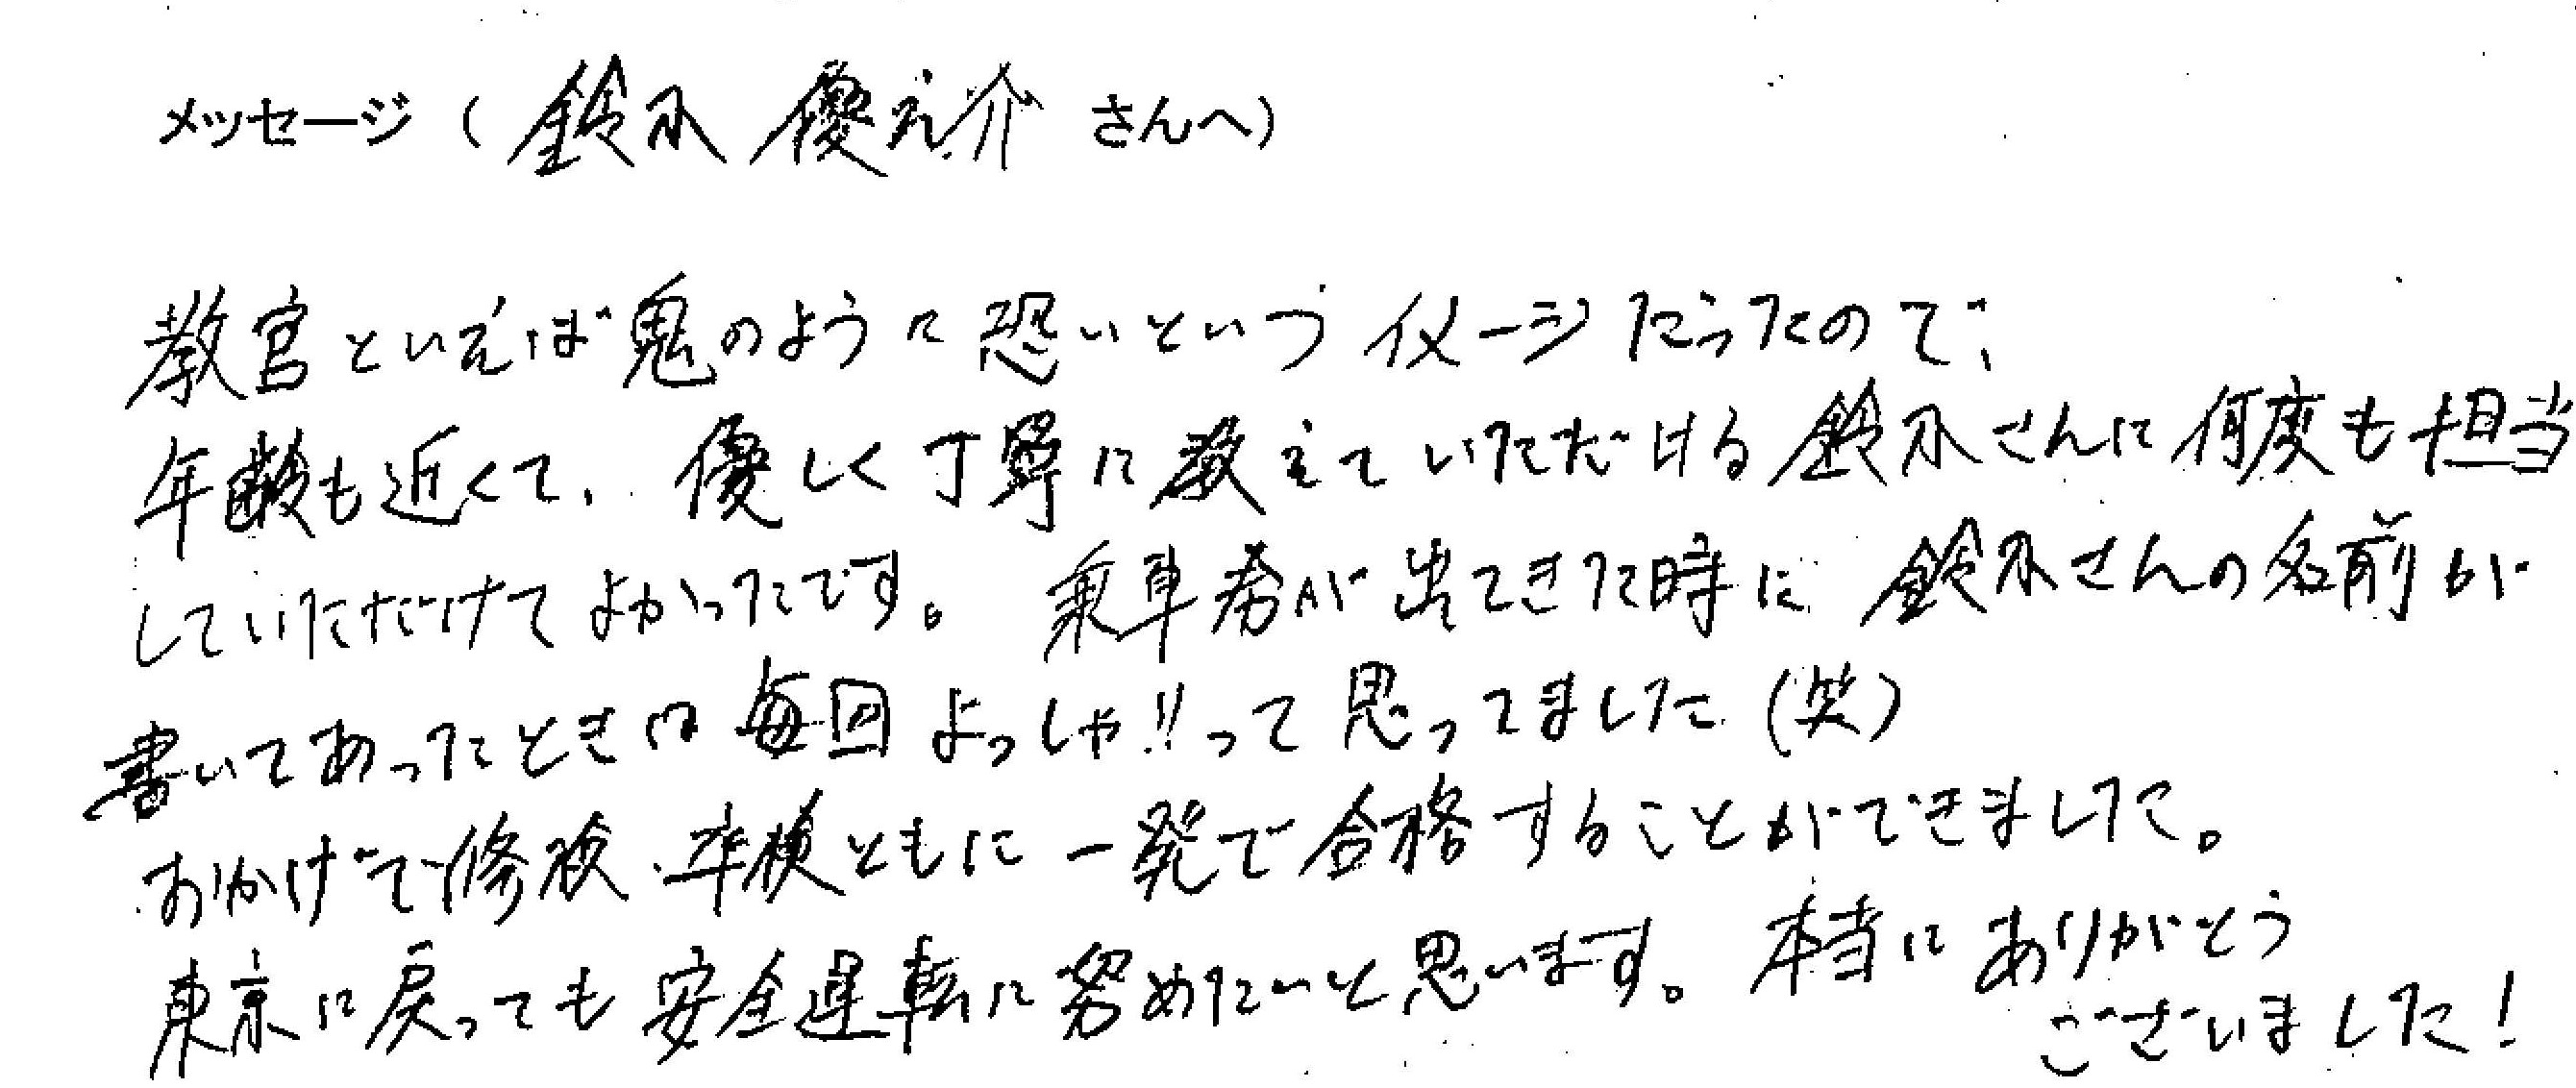 メッセージ（鈴木 優之介 さんへ）
教官といえば鬼のように恐いというイメージだったので、
年齢も近くて、優しく丁寧に教えていただける鈴木さんに何度も担当
していただけてよかったです。乗車券が出てきた時に鈴木さんの名前が
書いてあったときは毎回よっしゃ!!って思ってました（笑）
おかげで修検、卒検ともに一発で合格することができました。
東京に戻っても安全運転に努めたいと思います。本当にありがとう
ございました！